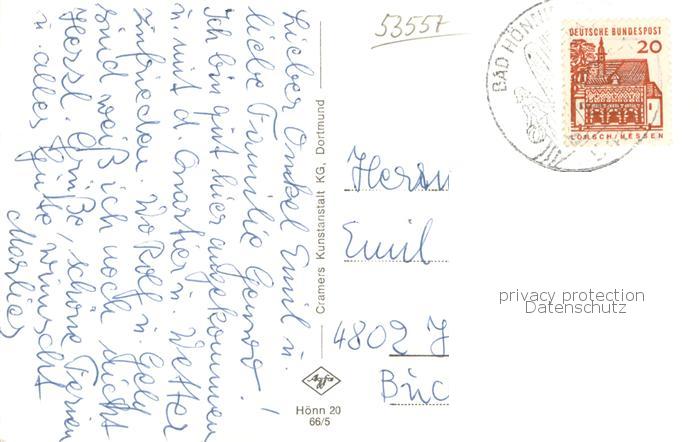 Lieber Onkel Emil u.
liebe Familie !
Ich bin gut hier angekommen
u. mit d. Quartier u. Wetter
zufrieden. Wo Rolf u.
sind weiß ich noch nicht
Herzl. Grüße, schöne Ferien
u. alles Gute wünscht
Marlies
Cramers Kunstanstalt KG, Dortmund
Agfa
Hönn 20
66/5
53557
BAD HÖNN
DEUTSCHE BUNDESPOST
20
LORSCH/HESSEN
Herrn
Emil
4802
privacy protection
Datenschutz